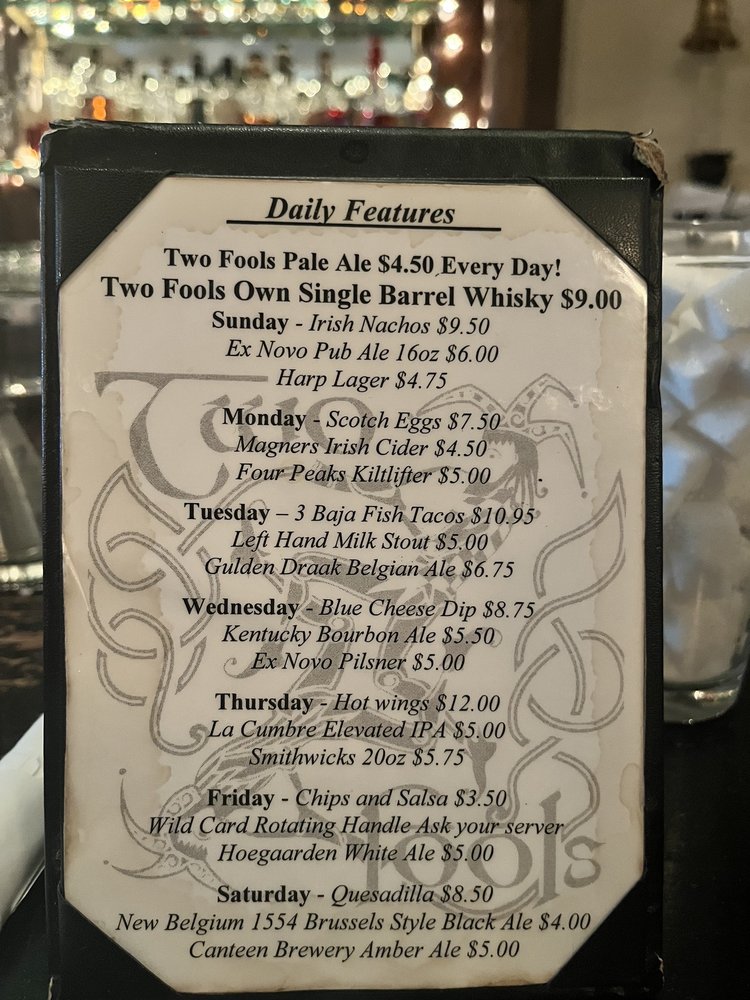 Daily Features
Two Fools Pale Ale $4.50 Every Day!
Two Fools Own Single Barrel Whisky $9.00
Sunday - Irish Nachos $9.50
Ex Novo Pub Ale 16oz $6.00
Harp Lager $4.75
Monday - Scotch Eggs $7.50
Magners Irish Cider $4.50
Four Peaks Kiltlifter $5.00
Tuesday – 3 Baja Fish Tacos $10.95
Left Hand Milk Stout $5.00
Gulden Draak Belgian Ale $6.75
Wednesday - Blue Cheese Dip $8.75
Kentucky Bourbon Ale $5.50
Ex Novo Pilsner $5.00
Thursday - Hot wings $12.00
La Cumbre Elevated IPA $5.00
Smithwicks 20oz $5.75
Friday - Chips and Salsa $3.50
Wild Card Rotating Handle Ask your server
Hoegaarden White Ale $5.00
Saturday - Quesadilla $8.50
New Belgium 1554 Brussels Style Black Ale $4.00
Canteen Brewery Amber Ale $5.00
Two
Fools